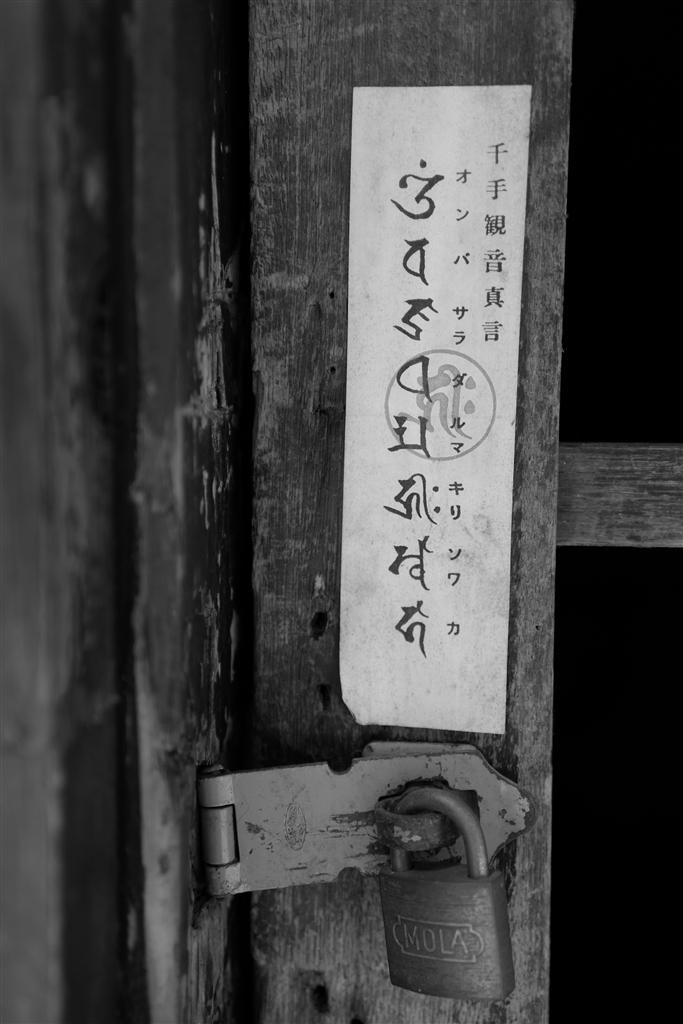 千手観音真言
オン バ サラ ダ ルマ キリ ソワ カ
𑖌𑖼 𑖪 𑖕𑖿𑖨 𑖠 𑖨𑖿𑖦 𑖮𑖿𑖨𑖱𑖾 𑖭𑖿𑖪𑖯 𑖮𑖯
𑖮𑖿𑖨𑖱𑖾
MOLA